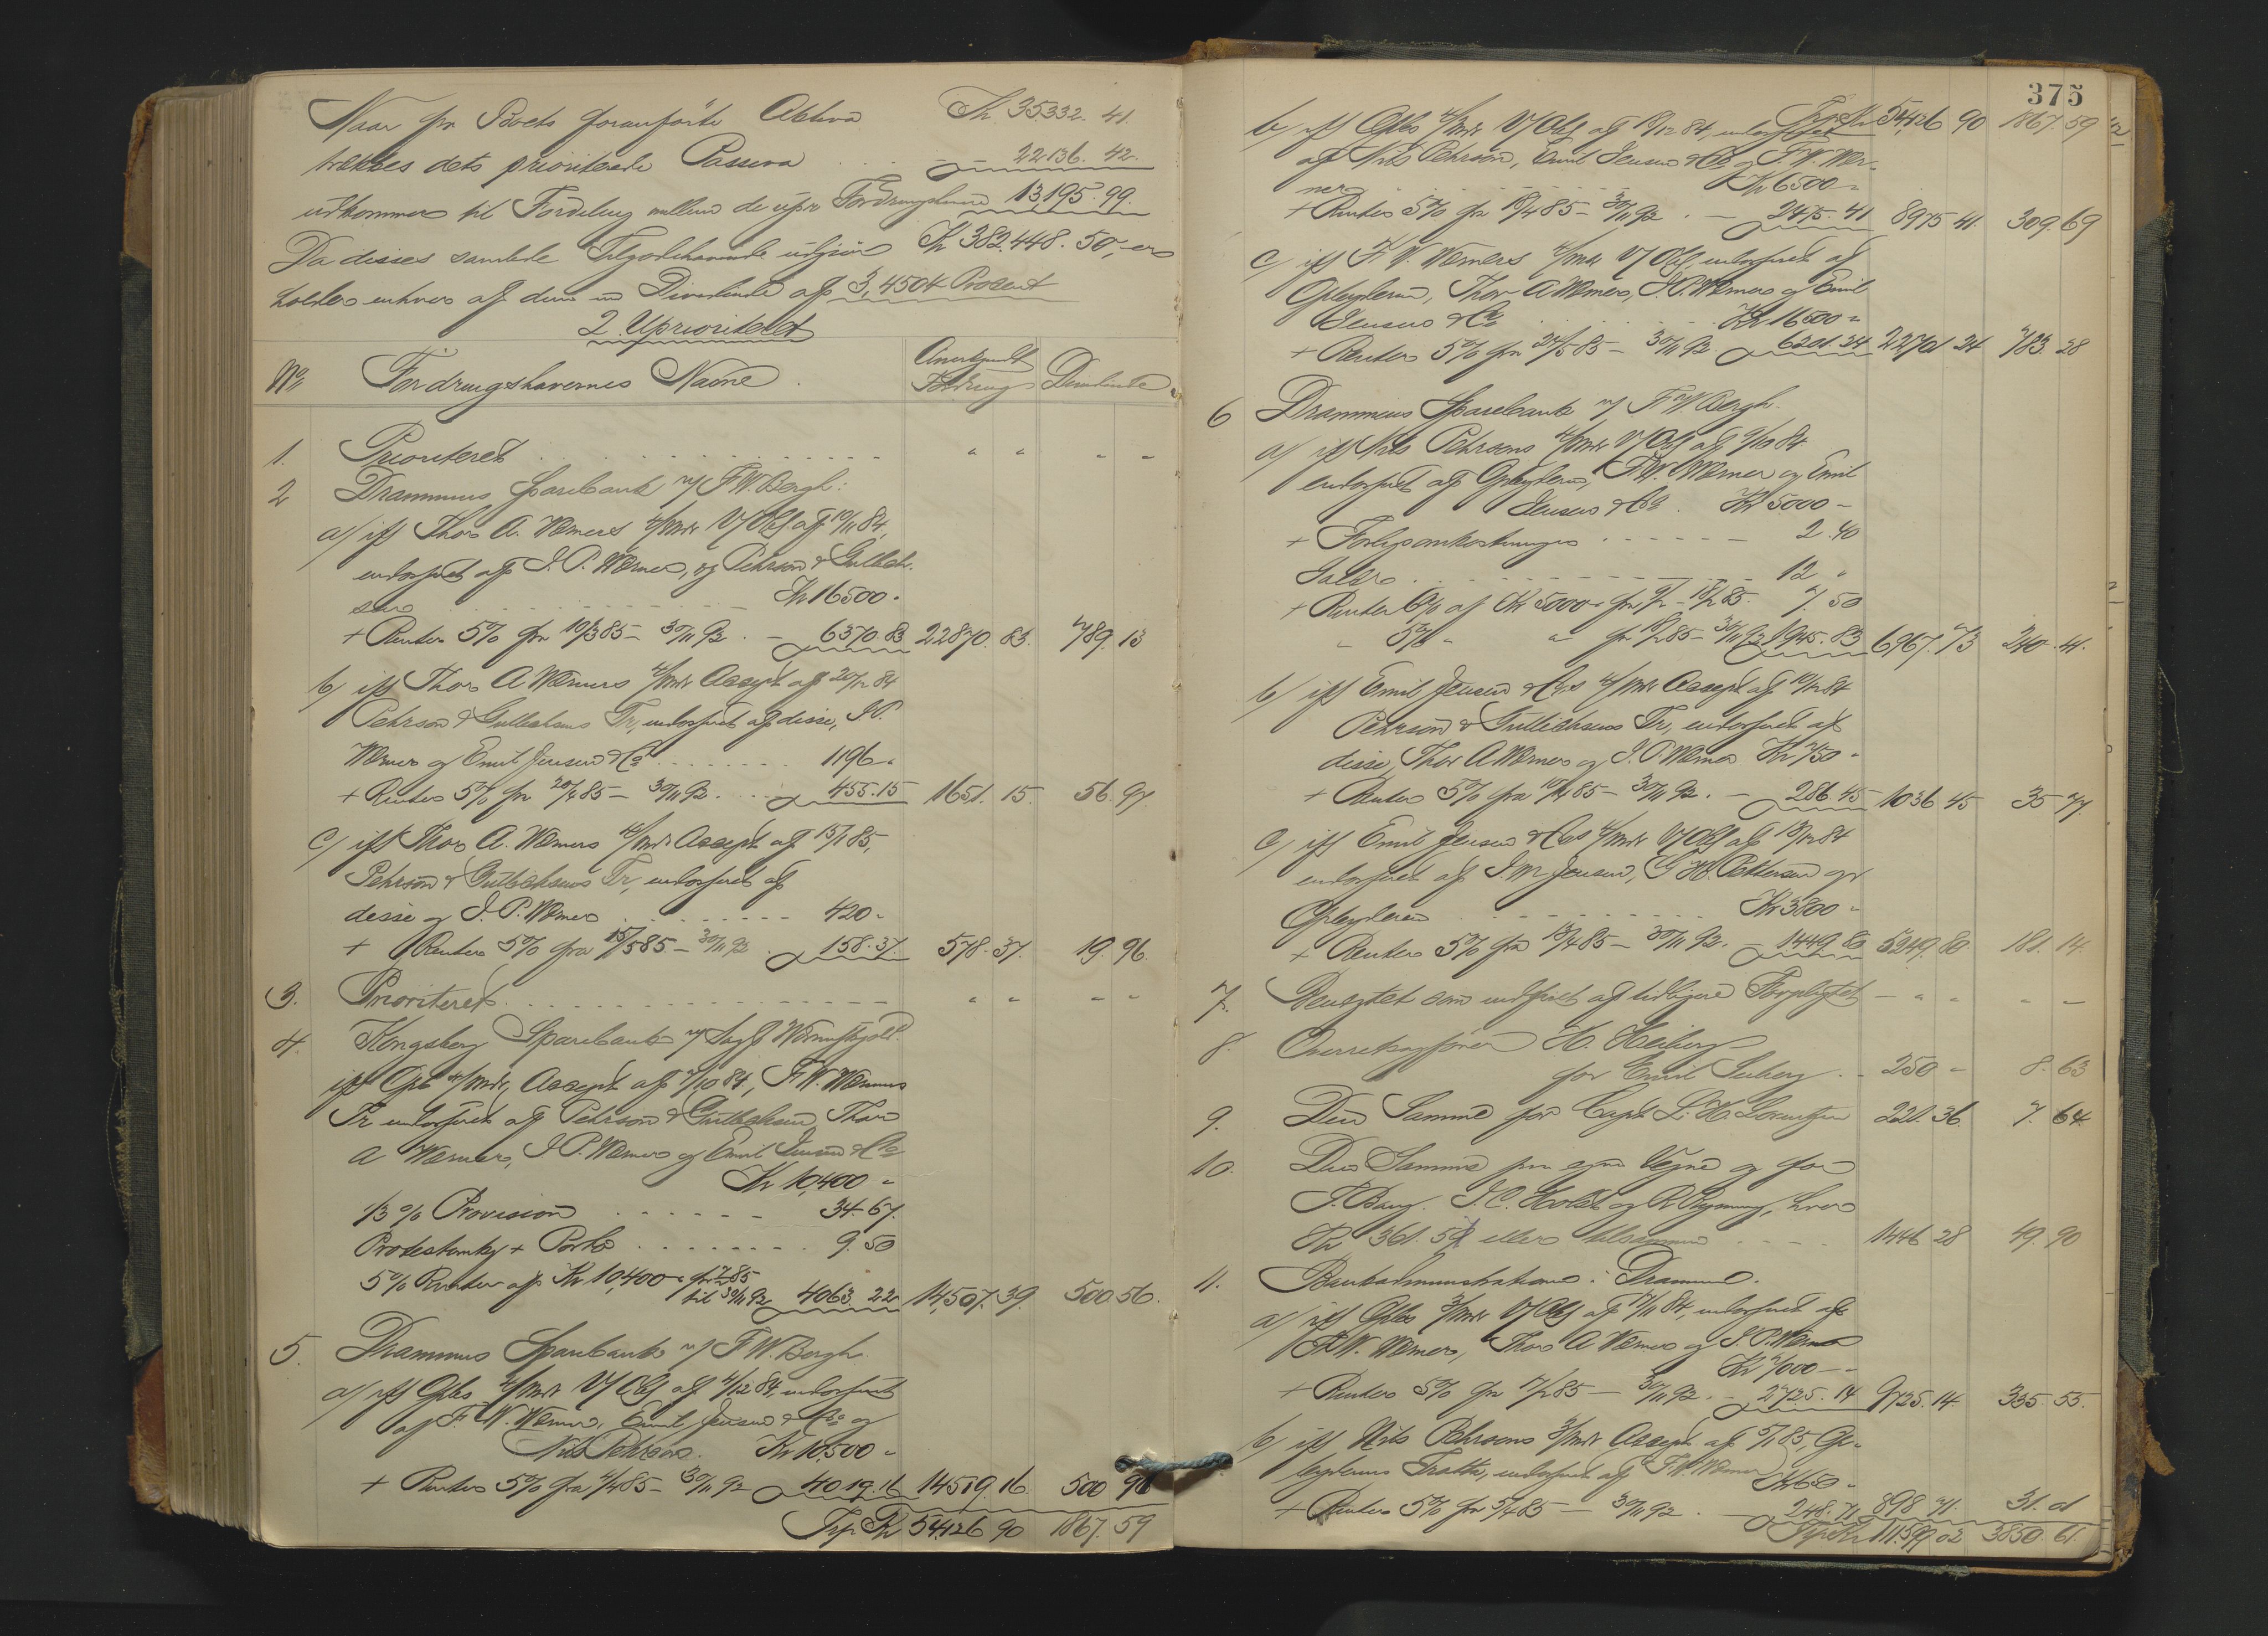 Naar fra Boets foranførte Aktiva Kr. 35.332. 41.
trækkes dets prioriterede Passiva . . . — 22.136. 42.
udkommer til Fordeling mellem de upr. Fordringshavere 13,195. 99.
Da disses samlede Tilgodehavende udgjør Kr 382.448. 50, er-
holder enhver af dem en Dividende af 3,4504 Procent
2 Uprioriteret
No Fordringshavernes Navne. Anerkjendt Fordring Dividende
1. Prioriteret . . . . " " - -
2 Drammens Sparebank v/ F. W. Bergh:
a/ ifl Thor A. Wærners 4/Mdr V/Obl. af 10/11 84,
endosseret af J. P. Wærner, og Pehrson & Gullich-
sen . . . . Kr 16500 -
+ Renter 5% fra 10/3 85 - 30/11 92 . — 6370. 83 22870. 83. 789. 13
b/ ifl Thor A Wærners 4/Mdr Accept af 20/12 84
Pehrson & Gullichsens Tr., endosseret af disse, J. P.
Wærner og Emil Jensen & Co . . . . 1196 -
+ Renter 5% fra 20/4 85 - 30/11 92 . . . 455. 15 1651. 15. 56. 97
c/ ifl Thor A. Wærners 4/Mdr Accept af 15/1 85,
Pehrson & Gullichsens Tr., endosseret af
disse og J. P. Wærner . . . . 420 -
+ Renter 5% fra 15/5 85 - 30/11 92 . 158. 37. 578. 37. 19. 96.
3. Prioriteret . . . . " " - -
4. Kongsberg Sparebank v/ Sagf
ifl Gpl. 4/Mdr, Accept af 7/10 84, F. W. Wærners
Tr endosseret af Pehrson & Gullichsen, Thor
A Wærner, J. P. Wærner og Emil Jensen & Co
Kr 10,400 -
1/3 % Provision . . . . 34. 67.
Protestomk. + Porto . . . . 9. 50
5% Renter af Kr 10,400 - fra 7/2 85
til 30/11 92 4063. 22 14,507. 39. 500. 56.
5. Drammens Sparebank v/ F. W. Bergh.
a/ ifl Gpls 4/Mdr V/Obl af 4/12 84, endosseret
af F. W. Wærner, Emil Jensen & Co og
Nils Pehrson. Kr 10,500 -
+ Renter 5% fra 4/4 85 - 30/11 92 4019. 16 14519. 16. 500 98
Trp. Kr 54126 90 1867. 59
375
Trp. Kr 54,126 90 1867. 59
b/ ifl Gpls 4/Mdr V/Obl af 18/12 84, endosseret
af Nils Pehrson, Emil Jensen & Co og F. W. Wær-
ner . . . . Kr 6500 -
+ Renter 5% fra 18/4 85 - 30/11 92 . — 2475. 41 8975 41. 309. 69
c/ ifl F. W. Wærners 4/Mdr V/Obl, endosseret af
Gpleyderen, Thor A Wærner, J. P. Wærner og Emil
Jensen & Co . . . . Kr. 16500 -
+ Renter 5% fra 24/5 85 - 30/11 92 6201 24 22701 24 783. 28
6 Drammens Sparebank v/ F W Bergh.
a/ ifl Nils Pehrsons 4/Mdr V/Obl af 9/10 84
endosseret af Gpleyderen, F. W. Wærner og Emil
Jensen & Co . Kr 5000 -
+ Forligsomkostninger . . . . 2. 40
Salær . . . . 12 "
+ Renter 6% af Kr 5000 - fra 9/2 - 18/2 85. 7. 50
" 5% " " fra 18/2 85 - 30/11 92 1945. 83 6967. 73 240. 41.
b/ ifl Emil Jensen & Co's 4/Mdr Accept af 10/12 84
Pehrson & Gullichsens Tr., endosseret af
disse, Thor A Wærner og J. P. Wærner Kr. 750 -
+ Renter 5% fra 10/4 85 - 30/11 92 . — 286 45 1036 45 35 77.
c/ ifl Emil Jensen & Co's 4/Mdr V/Obl af 13/12 84
endosseret af J. M. Jensen, G. H. Pettersen og
Gpleyderen . . . . Kr 3800 -
+ Renter 5% fra 13/4 85 - 30/11 92. — 1449 80 5249. 80 181. 14.
7. Benyttet som indfriet af tidligere Forpligtet — " " " -
8. Overretssagfører H. Heiberg
for Emil . — 250 - 8. 63
9. Den Samme for Capt. L. H. Lorentzen 221. 36 7. 64.
10. Den Samme paa egne Vegne og for
J. Bang. J. C. Holst og R Rygning, hver
Kr 361. 57 eller tilsammen . . . . 1446 28 49. 90
11. Bankadministrationen i Drammen.
a/ ifl Gpls 3/Mdr V/Obl af 17/11 84, endosseret af
F. W. Wærner, Thor A Wærner og J. P. Wærner
Kr 7,000 -
+ Renter 5% fra 17/2 85 - 30/11 92. — 2725. 14 9725. 14 335. 55.
b/ ifl Nils Pehrsons 3/Mdr Accept af 5/1 85, Gp-
leyderens Tratte, endosseret af F. W. Wærner
Kr 650 -
+ Renter 5% fra 5/4 85 - 30/11 92 . — 248. 71 898 71. 31. 01
Trp Kr 111599 02 3850. 61.